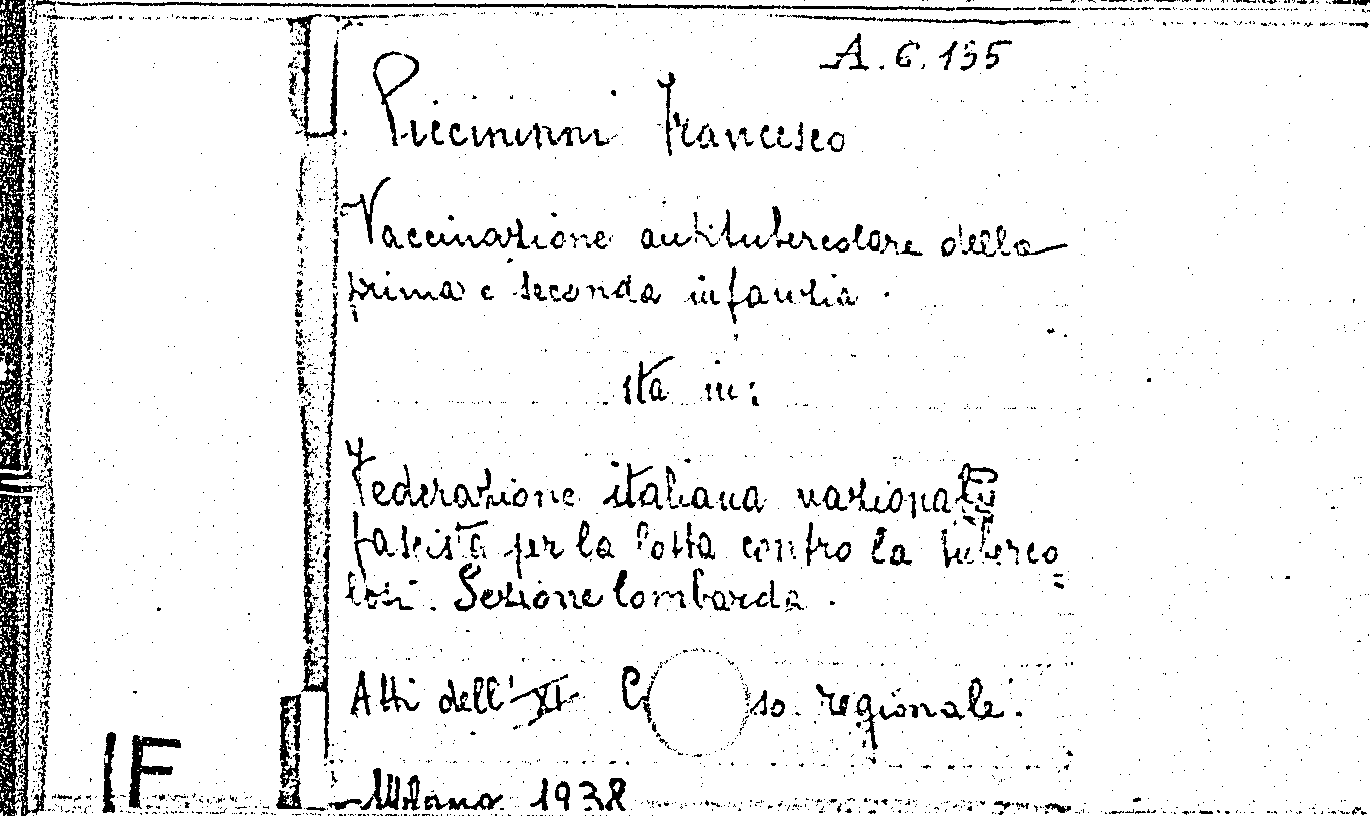 A.6.135
Piccininni Francesco
Vaccinazione antitubercolare della
prima e seconda infanzia.
sta in:
Federazione italiana nazionale
fascista per la lotta contro la tuberco=
losi. Sezione lombarda.
Atti dell'XI C so. regionale.
Milano 1938
IF